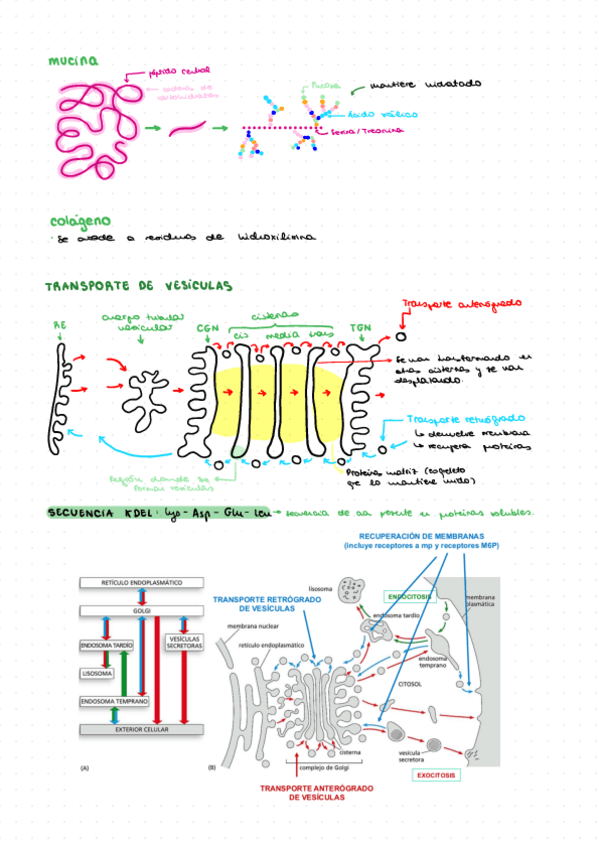 mucina
péptido central
cadena de
carbohidratos
Fucosa
mantiene hidratado
Ácido siálico
Serina/Treonina
colágeno
· Se añade a residuos de hidroxilisina
TRANSPORTE DE VESÍCULAS
Transporte anterógrado
RE
cuerpo tubular
vesicular
CGN
cisternas
cis media trans
TGN
Se van transformando en
otras cisternas y se van
desplazando.
Transporte retrógrado
↳ devuelve membrana
↳ recupera proteínas
Región donde se
forman vesículas
Proteínas matriz (esqueleto
que lo mantiene unido)
SECUENCIA KDEL: Lys - Asp - Glu - Leu → secuencia de aa presente en proteínas solubles.
RECUPERACIÓN DE MEMBRANAS
(incluye receptores a mp y receptores M6P)
RETÍCULO ENDOPLASMÁTICO
GOLGI
ENDOSOMA TARDÍO
VESÍCULAS
SECRETORAS
LISOSOMA
ENDOSOMA TEMPRANO
EXTERIOR CELULAR
(A)
TRANSPORTE RETRÓGRADO
DE VESÍCULAS
lisosoma
ENDOCITOSIS
membrana
plasmática
endosoma tardío
membrana nuclear
retículo endoplasmático
endosoma
temprano
CITOSOL
cisterna
vesícula
secretora
(B)
complejo de Golgi
EXOCITOSIS
TRANSPORTE ANTERÓGRADO
DE VESÍCULAS